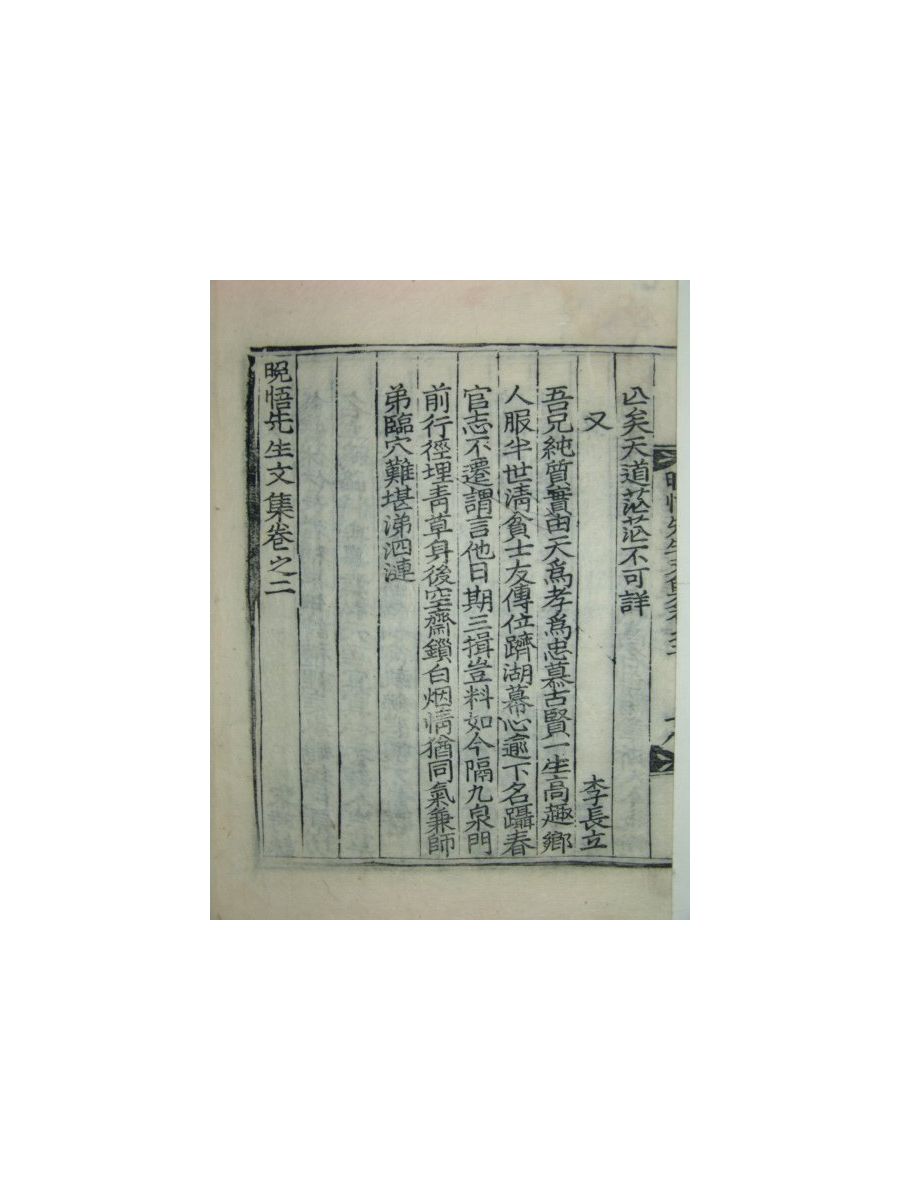 亾矣天道茫茫不可詳
又 李長立
吾兄純質實由天爲孝爲忠慕古賢一生高趣鄕
人服半世淸貧士友傳位躋湖幕心逾下名躡春
官志不遷謂言他日期三揖豈料如今隔九泉門
前行徑埋靑草身後空齋鎖白烟情猶同氣兼師
弟臨穴難堪涕泗漣
晩悟先生文集卷之二